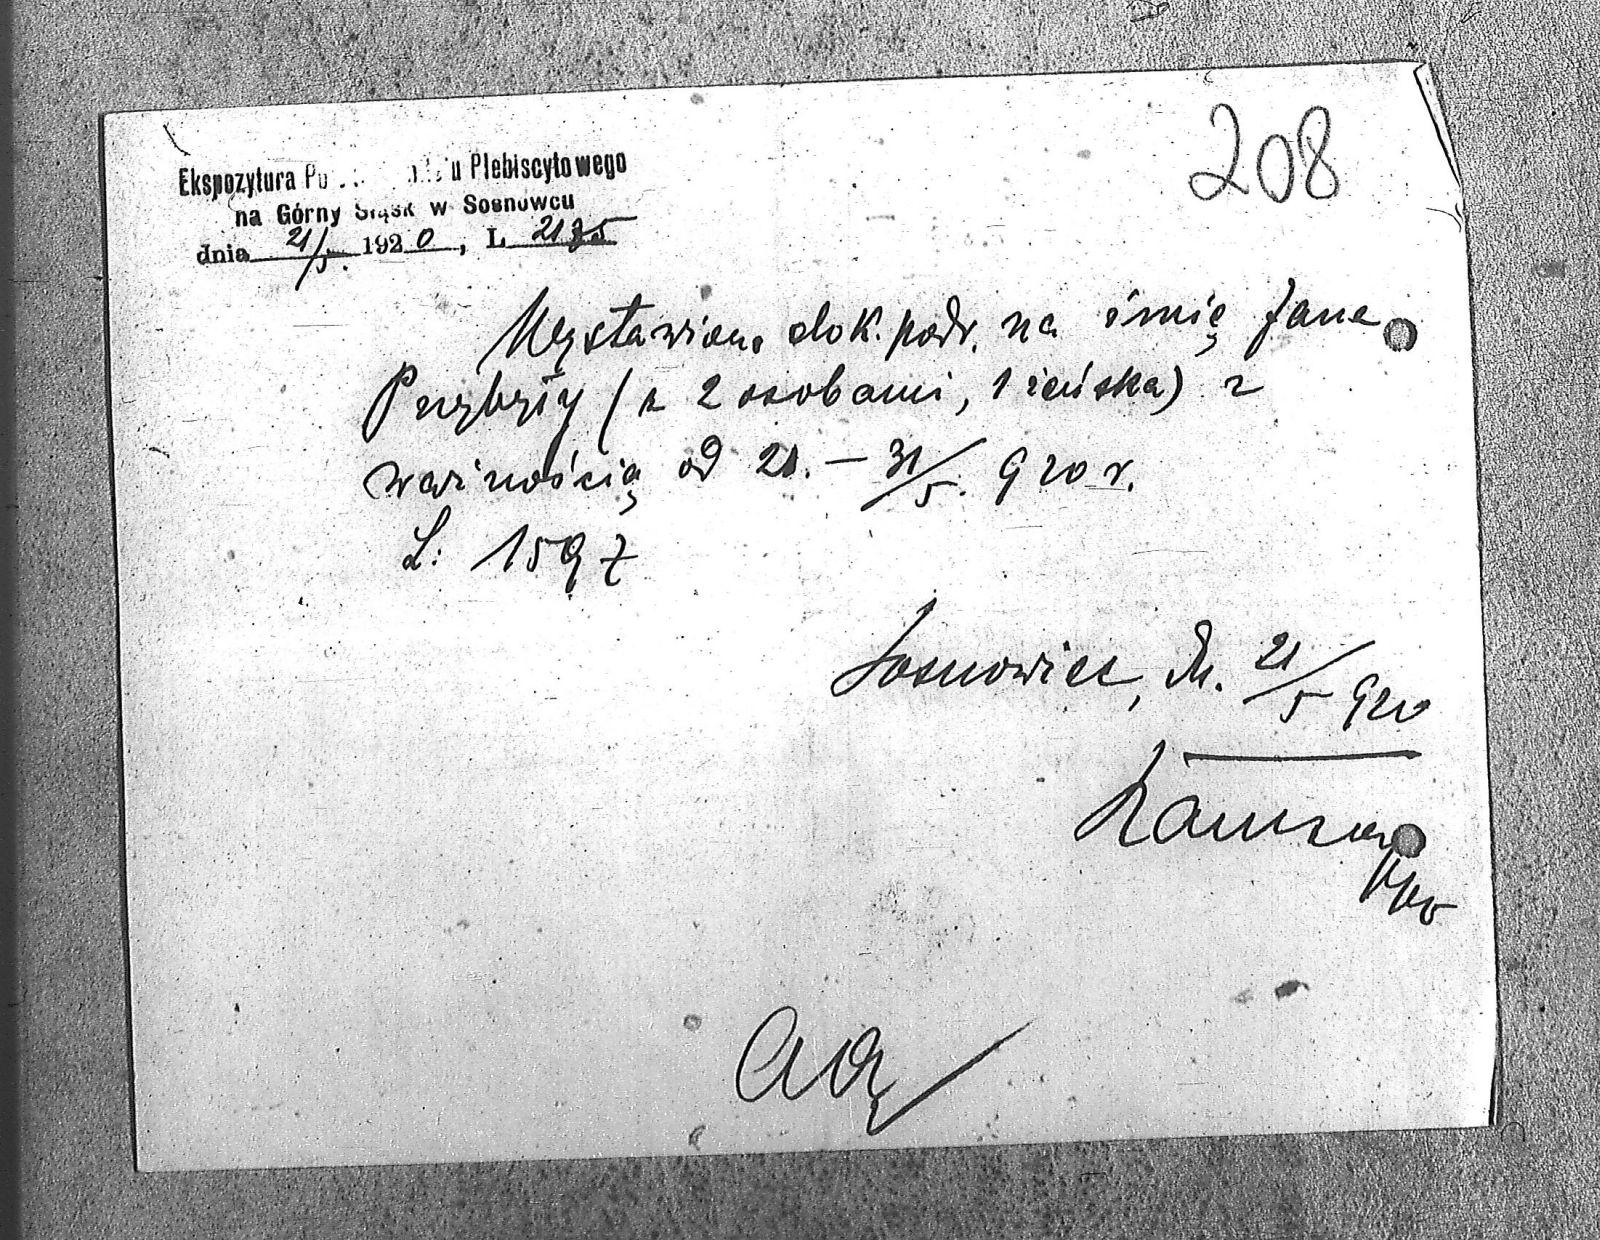 208
Ekspozytura Plebiscytowego
na Górny Śląsk w Sosnowcu
dnia 21/5. 1920, L. 2175
Wystawiono dok. podr. na imię Jana
Przybyły (z 2 osobami, 1 żeńska) z
ważnością od 21. – 31/5. 920 r.
L: 1597
Sosnowiec, dn. 21/5 920